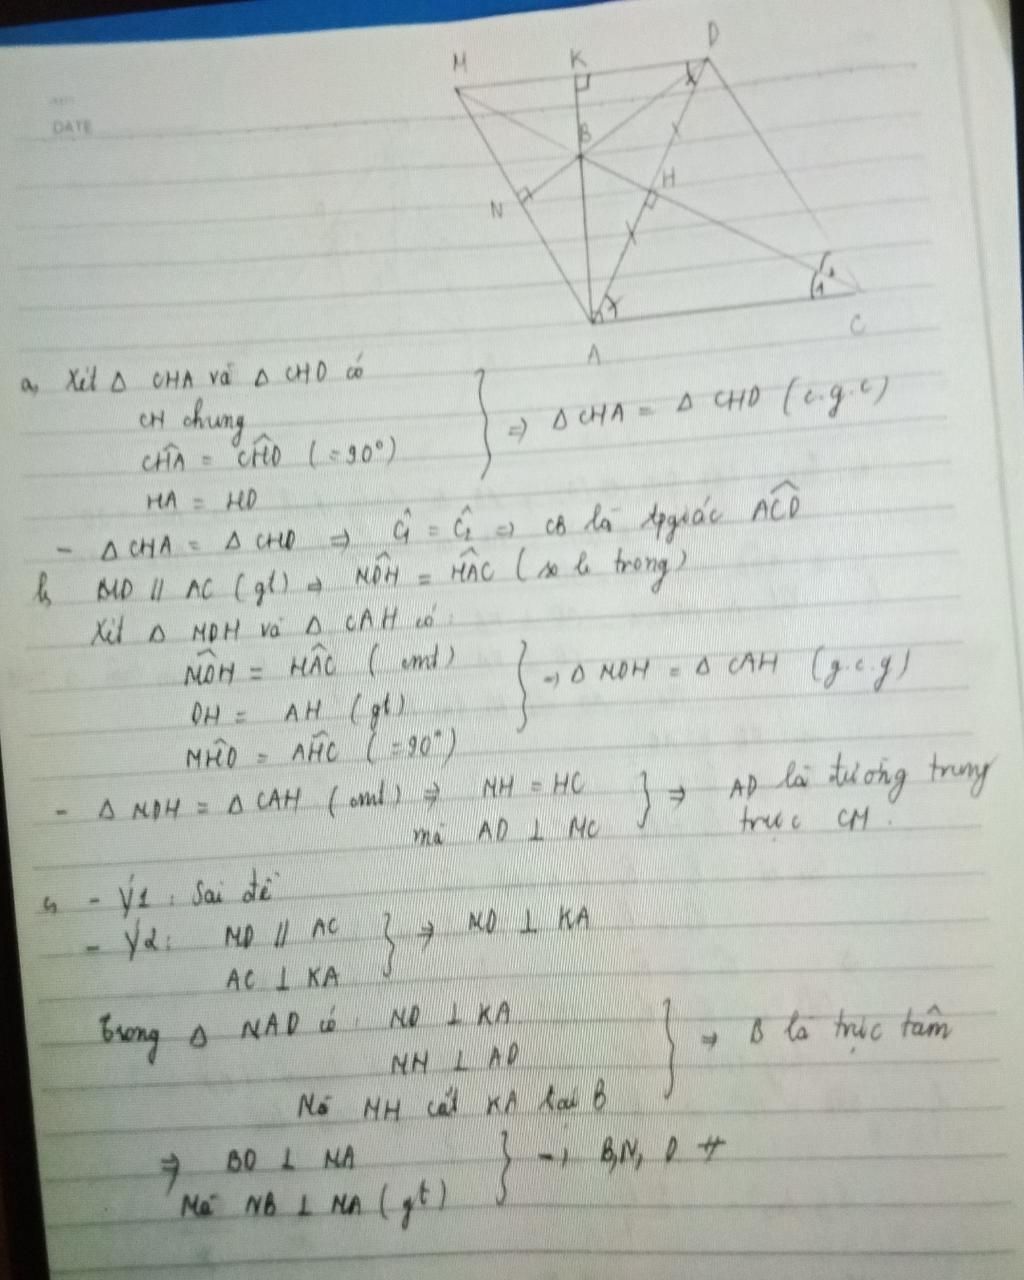 DATE
M K D
B
H
N
A
C
a, Xét Δ CHA và Δ CHD có
CH chung
CĤA = CĤD (= 90°)
HA = HD
⇒ Δ CHA = Δ CHD (c.g.c)
- Δ CHA = Δ CHD ⇒ Ĉ1 = Ĉ2 ⇒ CB là tpgiác AĈD
b, MD // AC (gt) ⇒ MD̂H = HÂC (so le trong)
Xét Δ MDH và Δ CAH có:
MD̂H = HÂC (cmt)
DH = AH (gt)
MĤD = AĤC (= 90°)
⇒ Δ MDH = Δ CAH (g.c.g)
- Δ MDH = Δ CAH (cmt) ⇒ MH = HC
mà AD ⊥ MC
⇒ AD là đường trung
trực CM.
c, - Ý1: Sai đề
- Ý2: MD // AC
AC ⊥ KA
⇒ MD ⊥ KA
Trong Δ MAD có: MD ⊥ KA
MH ⊥ AD
Mà MH cắt KA tại B
⇒ B là trực tâm
⇒ BD ⊥ MA
Mà NB ⊥ MA (gt)
⇒ B, N, D #